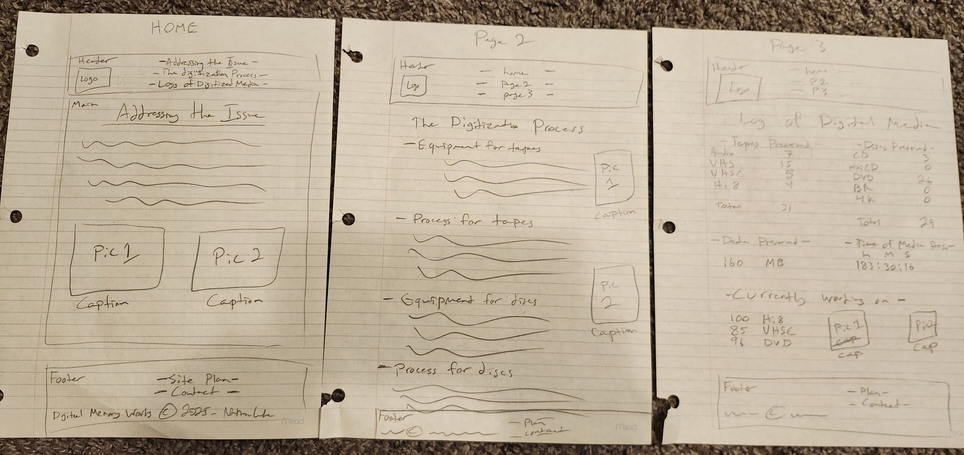 HOME
Header
-Addressing the Issue-
-The digitization Process-
-Logs of Digitized Media-
Logo
Main
Addressing the Issue
Pic 1
Pic 2
Caption
Caption
Footer
-Site Plan-
-Contact-
Digital Memory Works © 2025-
mead
Page 2
Header
Logo
- home -
- Page 2 -
- page 3 -
The Digitizatio Process
-Equipment for tapes
Pic 1
Caption
-Process for tapes
Pic 2
Caption
-Equipment for discs
-Process for discs
Footer
-Plan-
-Contact-
©
mead
Page 3
Header
Logo
- home
- P2
- P3
Log of Digital Media
-Tapes Preserved-
Audio 7
VHS 15
VHSC 5
Hi8 4
Total 31
-Discs Preserved-
CD 3
0
DVD 26
BR 0
4K 0
Total 29
-Data Preserved-
160 MB
-Time of Media
H M S
183:30:16
-Currently working on-
100 Hi8
85 VHSC
96 DVD
Pic 1
cap
cap
Pic 2
cap
Footer
-Plan-
-Contact-
©